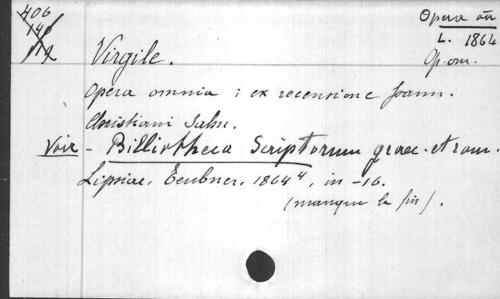 406
14
12
Opera om
L. 1864
Op. om.
Virgile.
Opera omnia : ex recensione Joann.
Christiani Jahn.
Voir - Bibliotheca Scriptorum graec. et rom.
Lipsiae, Teubner, 1864, in-16.
(manque la fin).